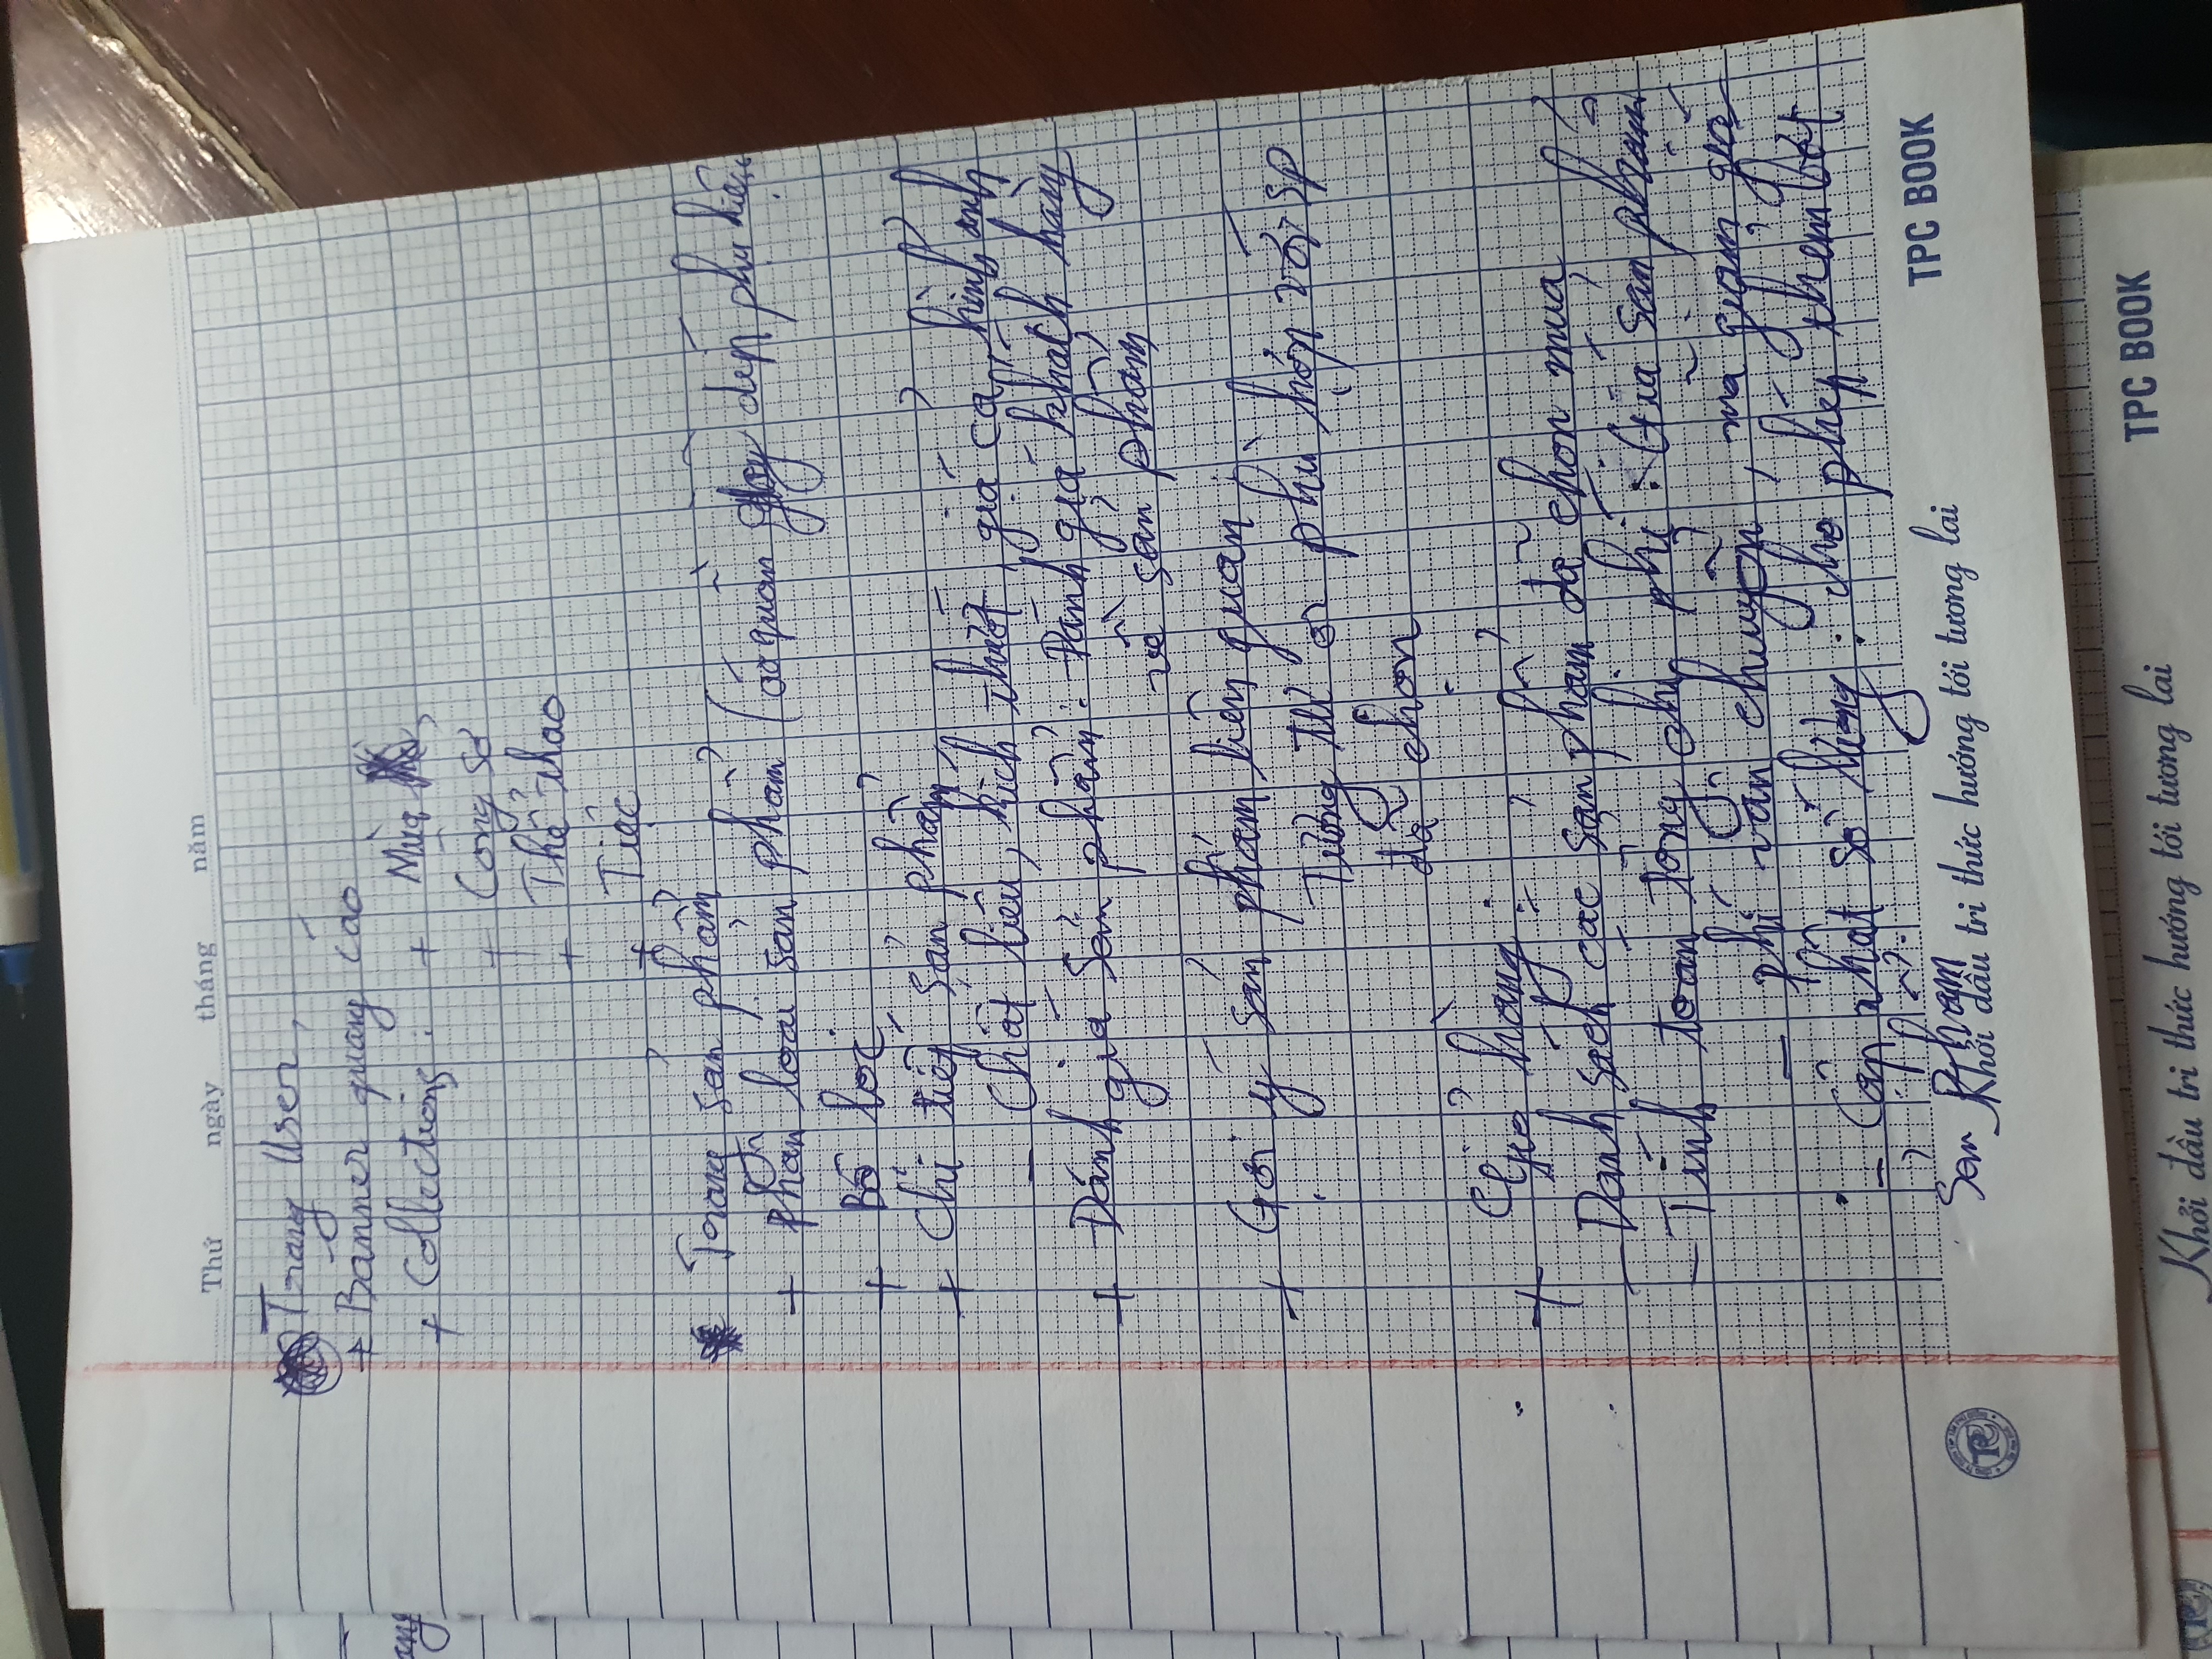 Thứ ngày tháng năm
Trang User,
+ Banner quảng cáo
+ Collections : + Mùa
+ Công sở
+ Thể thao
+ Tiệc
Trang sản phẩm
+ Phân loại sản phẩm (áo quần giày dép phụ kiện
+ Bộ lọc
+ Chi tiết sản phẩm
- Chất liệu, kích thướt, giá cả, hình ảnh
+ Đánh giá sản phẩm : Đánh giá khách hàng
về sản phẩm
+ Gợi ý sản phẩm liên quan :
Tương tự or phù hợp với sp
đã chọn
+ Giỏ hàng :
- Danh sách các sản phẩm đã chọn mua
- Tính toán tổng chi phí : Giá sản phẩm
- phí vận chuyển, mã giảm giá
- Cập nhật số lượng : cho phép thêm bớt
sản phẩm
Khởi đầu tri thức hướng tới tương lai
TPC BOOK
Khởi đầu tri thức hướng tới tương lai
TPC BOOK